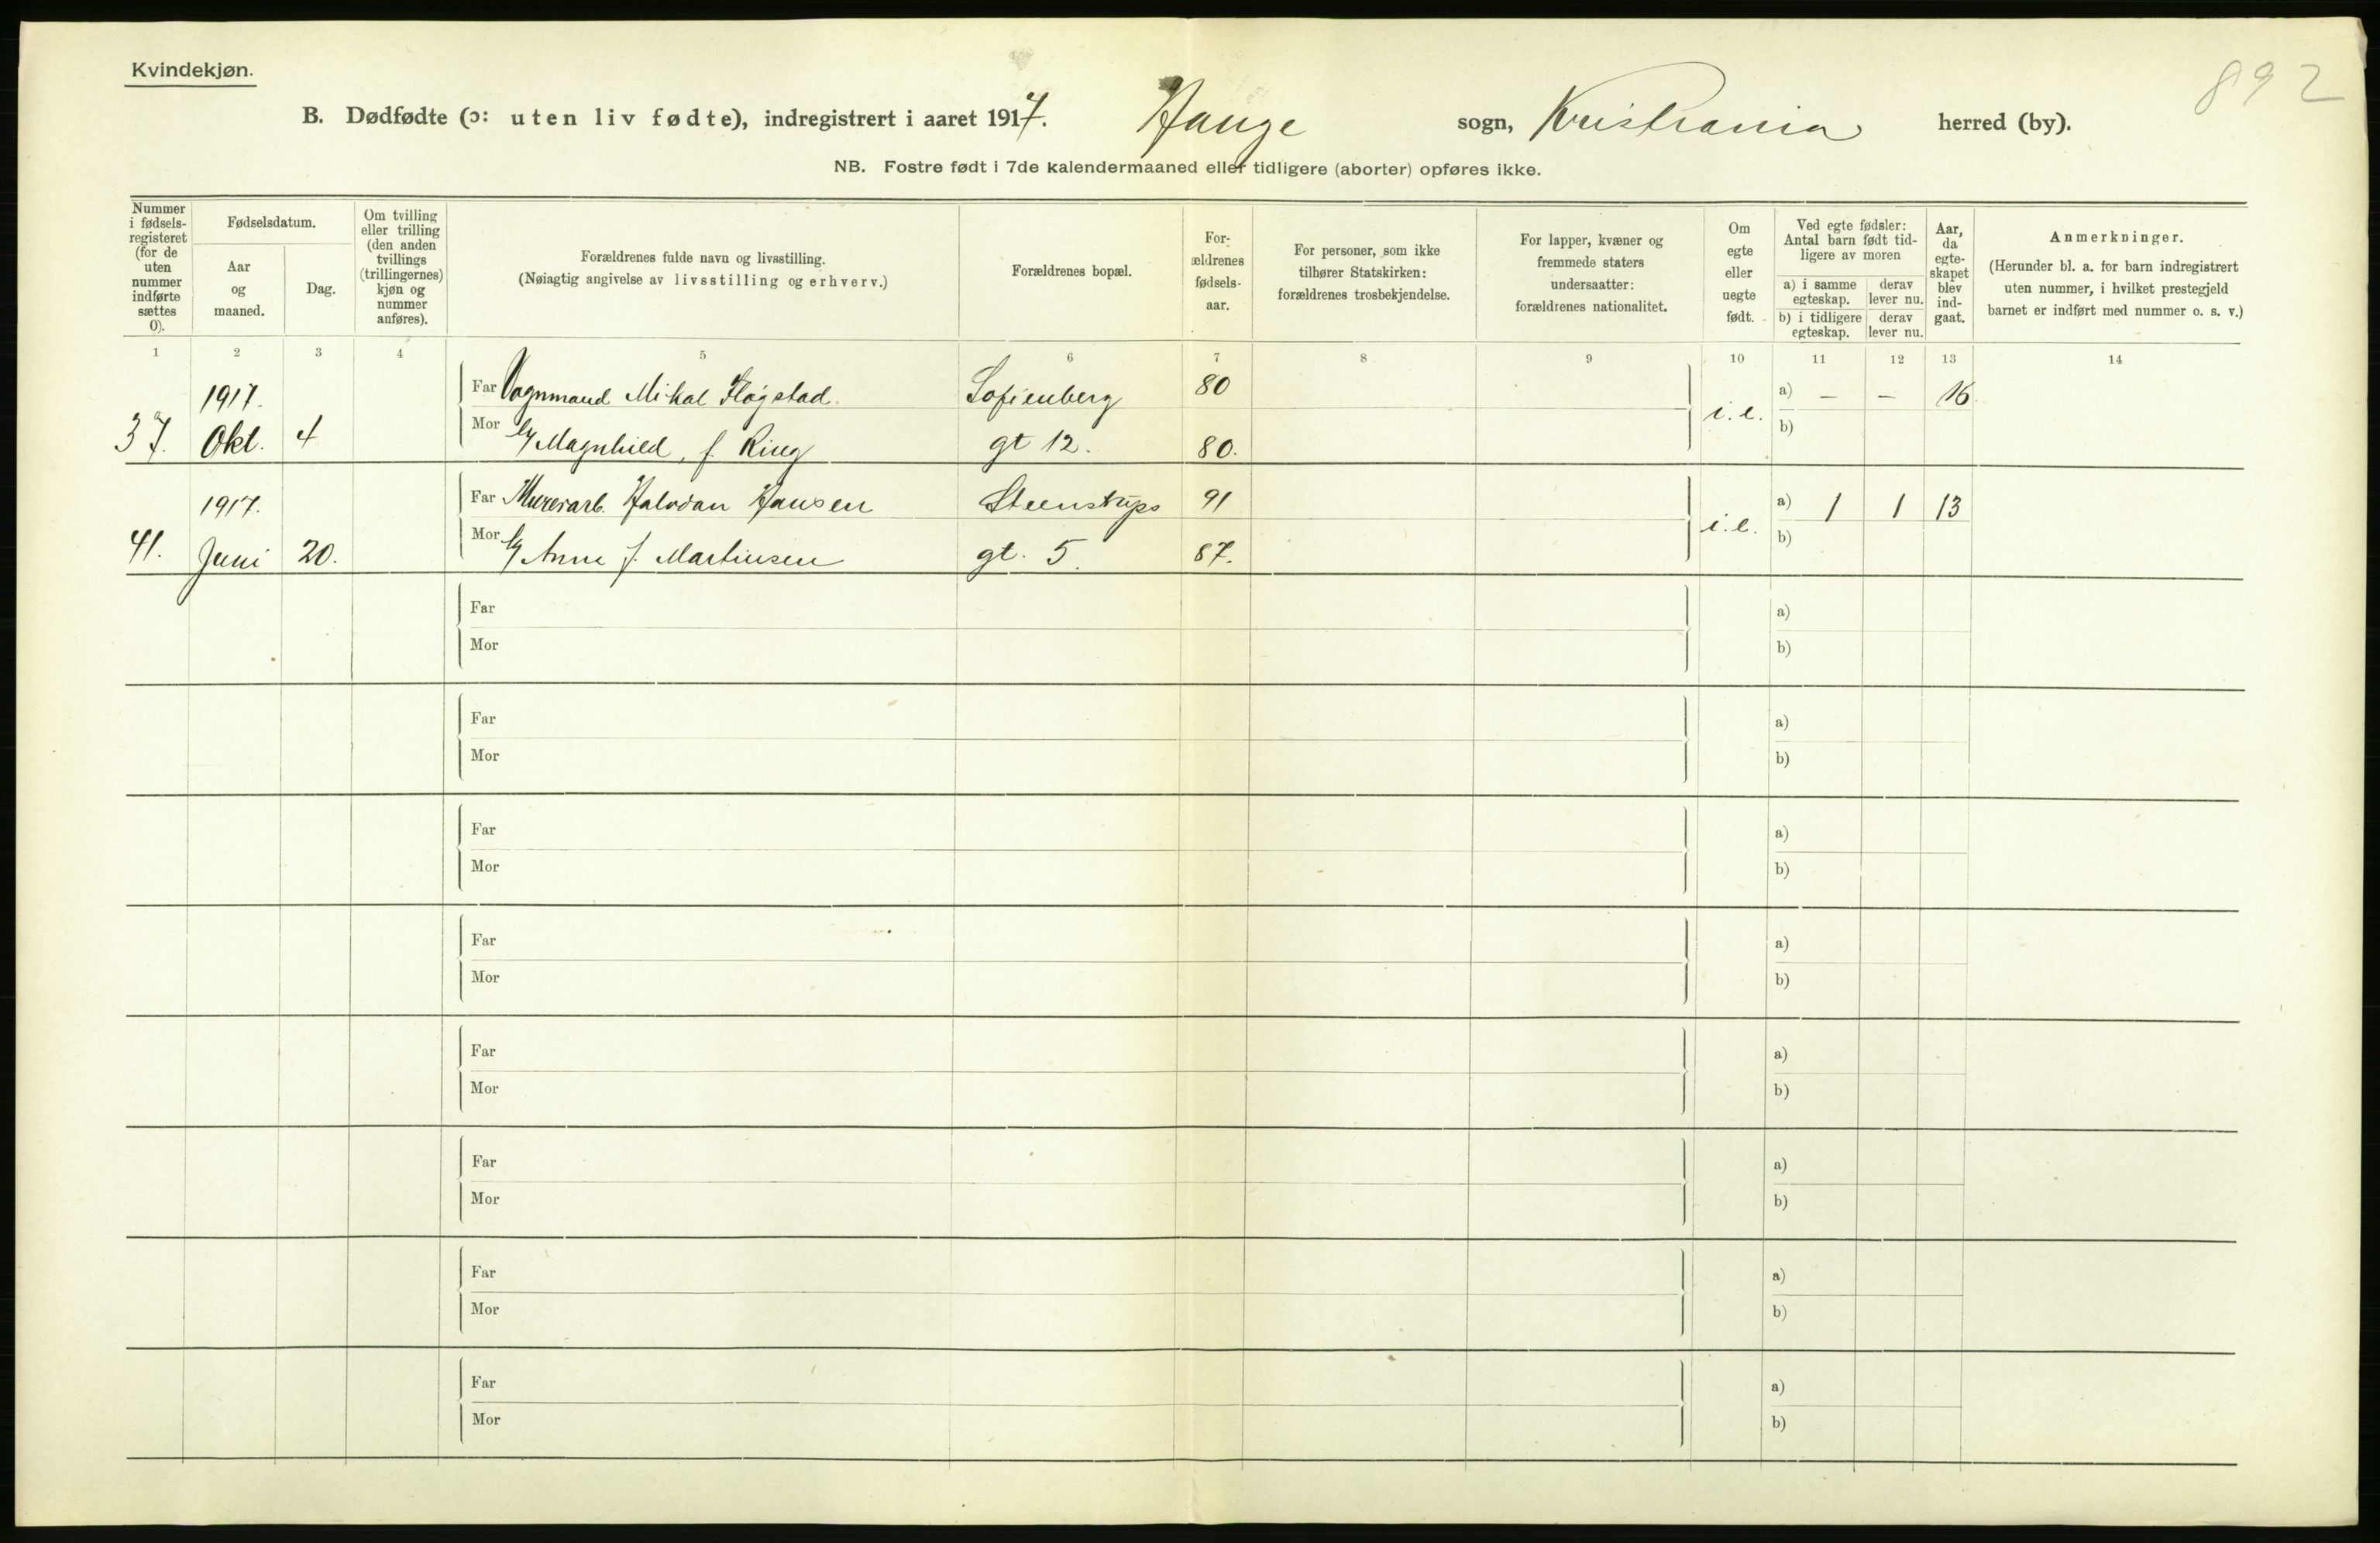 Kvindekjøn.
892
B. Dødfødte (ɔ: uten liv fødte), indregistrert i aaret 1917. Hauge sogn, Kristiania herred (by).
NB. Fostre født i 7de kalendermaaned eller tidligere (aborter) opføres ikke.
Nummer i fødsels-registeret (for de uten nummer indførte sættes 0).
Fødselsdatum.
Aar og maaned.
Dag.
Om tvilling eller trilling (den anden tvillings (trillingernes) kjøn og nummer anføres).
Forældrenes fulde navn og livsstilling.
(Nøiagtig angivelse av livsstilling og erhverv.)
Forældrenes bopæl.
For-ældrenes fødsels-aar.
For personer, som ikke tilhører Statskirken: forældrenes trosbekjendelse.
For lapper, kvæner og fremmede staters undersaatter: forældrenes nationalitet.
Om egte eller uegte født.
Ved egte fødsler: Antal barn født tid-ligere av moren
a) i samme egteskap. derav lever nu.
b) i tidligere egteskap. derav lever nu.
Aar, da egte-skapet blev ind-gaat.
Anmerkninger.
(Herunder bl. a. for barn indregistrert uten nummer, i hvilket prestegjeld barnet er indført med nummer o. s. v.)
1 2 3 4 5 6 7 8 9 10 11 12 13 14
1917. Far Vognmand Mikal Fløgstad. Sofienberg 80 a) – – 16.
37. Okt. 4 Mor Magnhild, f. Ring gt 12. 80. i.e. b)
1917. Far Murerarb. Halvdan Hansen Steenstrups 91 a) 1 1 13
41. Juni 20. Mor Anne f. Martinsen gt. 5. 87. i.e. b)
Far a)
Mor b)
Far a)
Mor b)
Far a)
Mor b)
Far a)
Mor b)
Far a)
Mor b)
Far a)
Mor b)
Far a)
Mor b)
Far a)
Mor b)